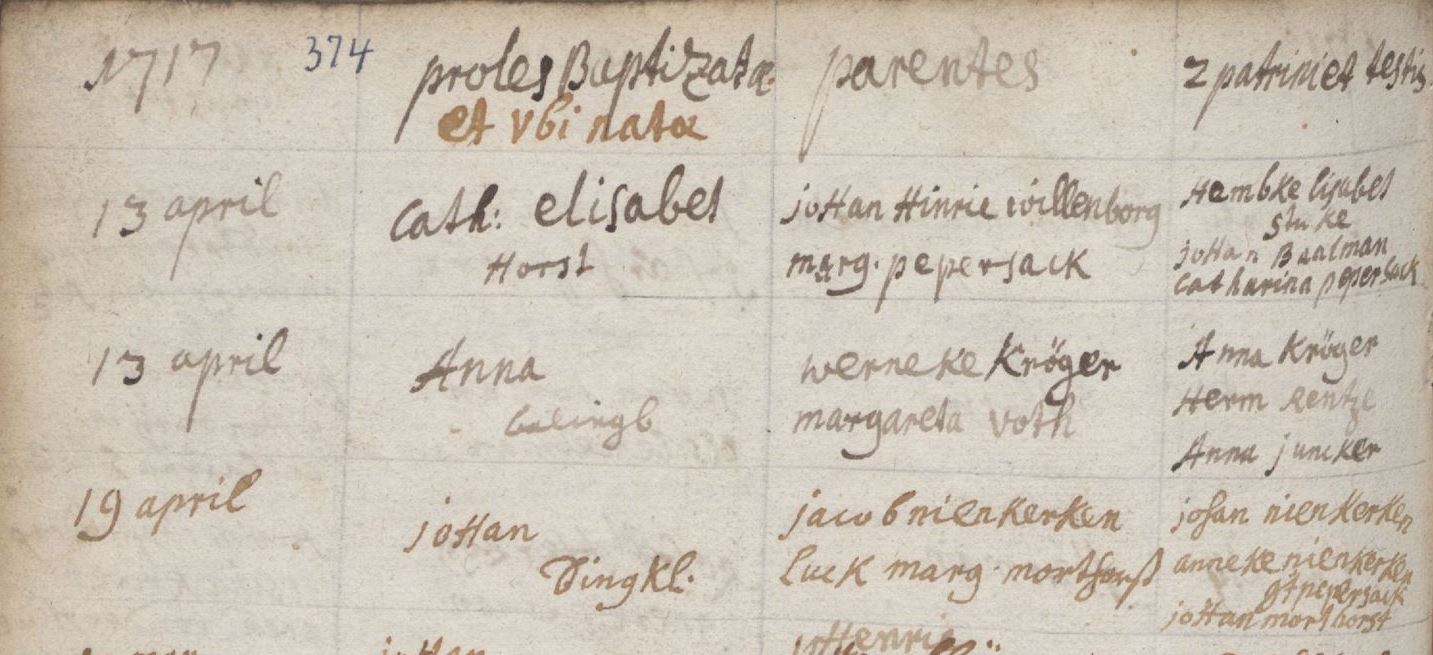 1717 374 proles Baptizatæ parentes 2 patrini et testis
et vbi natæ
13 april Cath: elisabet joHan Hinric willenborg Hembke lisabet
stuke
Horst marg. pepersack joHan Baalman
Catharina pepersack
13 april Anna werneke Kröger Anna Kröger
margareta voth Herm Rentze
Anna juncker
19 april joHan jacob nienkerken johan nienkerken
Dingkl. luck marg morthorst anneke nienkerken
gt pepersack
joHan morthorst
joHan Henric